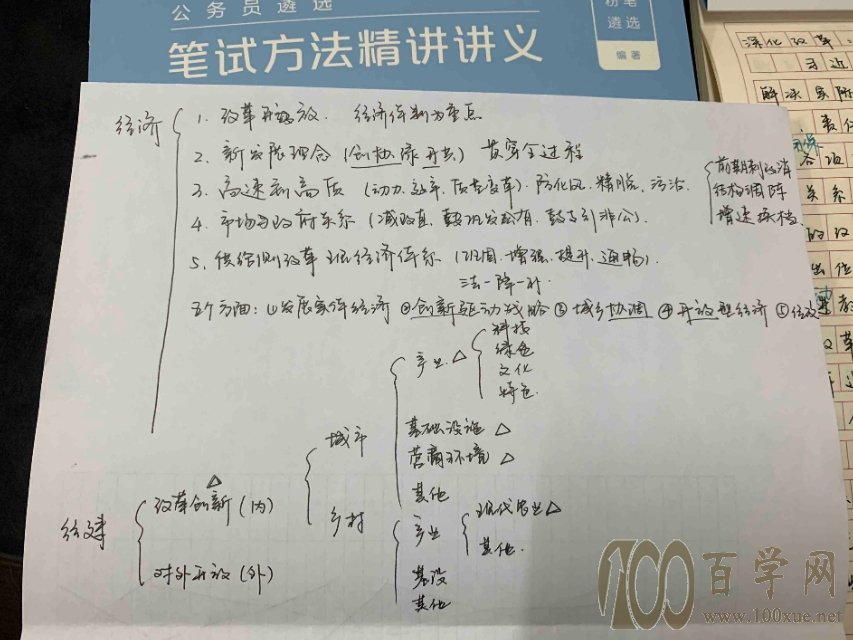 公务员遴选
粉笔
遴选
编著
笔试方法精讲讲义
深化改革
习近
解决实际
责任
各项
关系
的改
出位
改革
经济
1. 改革开放. 经济体制为重点
2. 新发展理念 (创协绿开共) 贯穿全过程
3. 高速到高质 (动力.效率.质量变革). 防化风.精脱.污治.
前期刺政消
结构调阵
增速换档
4. 市场与政府关系 (减政直.毅巩发公有.毅支引非公).
5. 供给侧改革 现经济体系 (巩固.增强.提升.畅通).
三去一降一补.
五个方面: ①发展实体经济 ②创新驱动战略 ③城乡协调 ④开放型经济 ⑤体改
经建
改革创新 (内) △
对外开放 (外)
城市
产业 △
科技
绿色
文化
特色.
基础设施 △
营商环境 △
其他
乡村
产业
现代农业△
其他.
基设
其他
100百学网
www.100xue.net